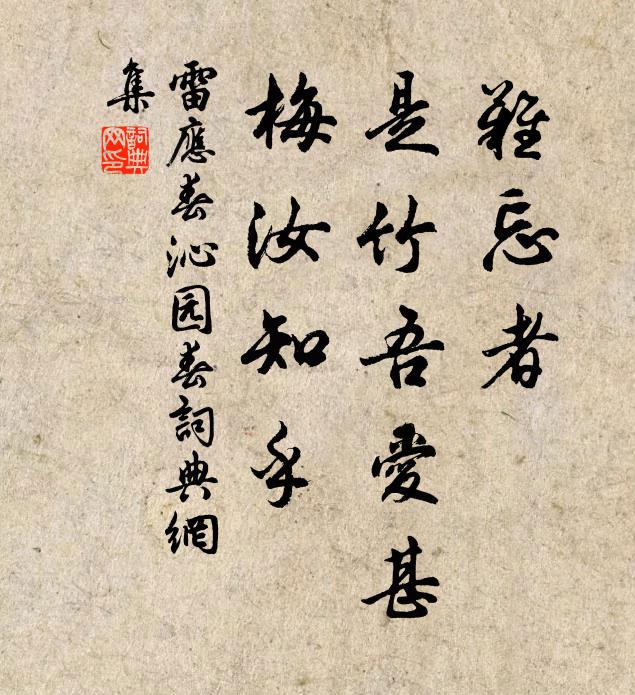 難忘者
是竹吾愛甚
梅汝知乎
雷應春沁园春詞典網
集
詞典
网印